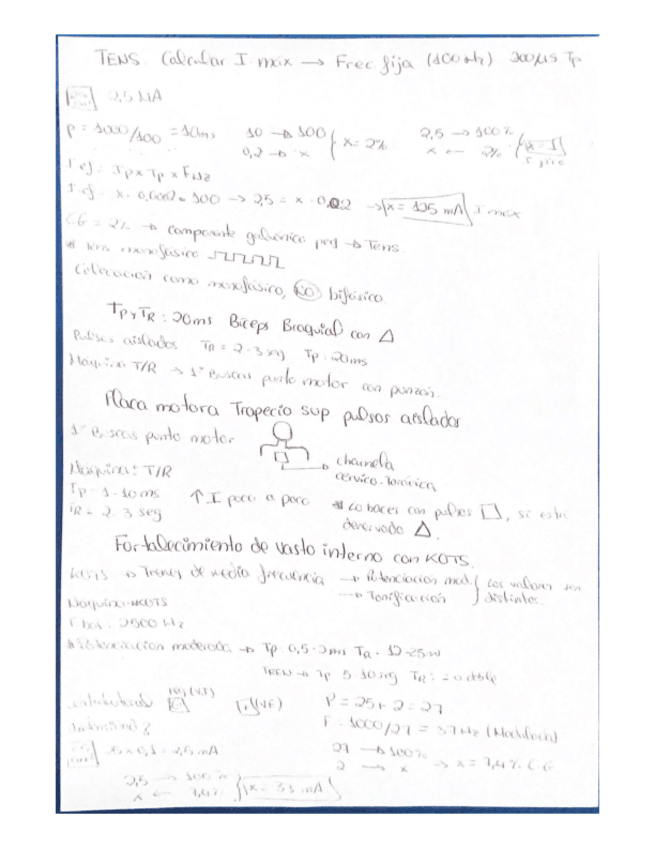 TENS. Calcular I max → Frec fija (100 Hz) 200µs Tp
2,5 mA
P = 1000/100 = 10ms 10 → 100 0,2 → x } x = 2% 2,5 → 100% x ← 2%
I ef = Ip x Tp x F Hz
I ef = x · 0,0002 · 100 → 2,5 = x · 0,02 → x = 125 mA I max
CG = 2% → componente galvánico → Tens.
* tens monofásico
Colocación como monofásico, NO bifásico
Tp y TR : 20ms Biceps Braquial con △
Pulsos aislados TR = 2-3 seg Tp: 20ms
Máquina T/R → 1º Buscas punto motor con punzón.
Placa motora Trapecio sup pulsos aislados
1º Buscas punto motor
charnela
cérvico-torácica
Máquina: T/R
Tp = 1-10ms ↑ I poco a poco * Lo haces con pulsos □, si está
TR = 2-3 seg denervado △.
Fortalecimiento de vasto interno con KOTS.
KOTS → Trenes de media frecuencia → Potenciación mod. { Los valores son
→ Tonificación distintos.
Máquina: KOTS
2500 Hz
Potenciación moderada → Tp 0,5-2ms TR = 12-25
TREN → Tp 5-10seg TR = doble
P = 25 + 2 = 27
F = 1000/27 = 37 Hz
x 0,1 = 2,5 mA 27 → 100%
2 → x → x = 7,4% CG
2,5 → 100%
x ← 7,4% { x = 33 mA